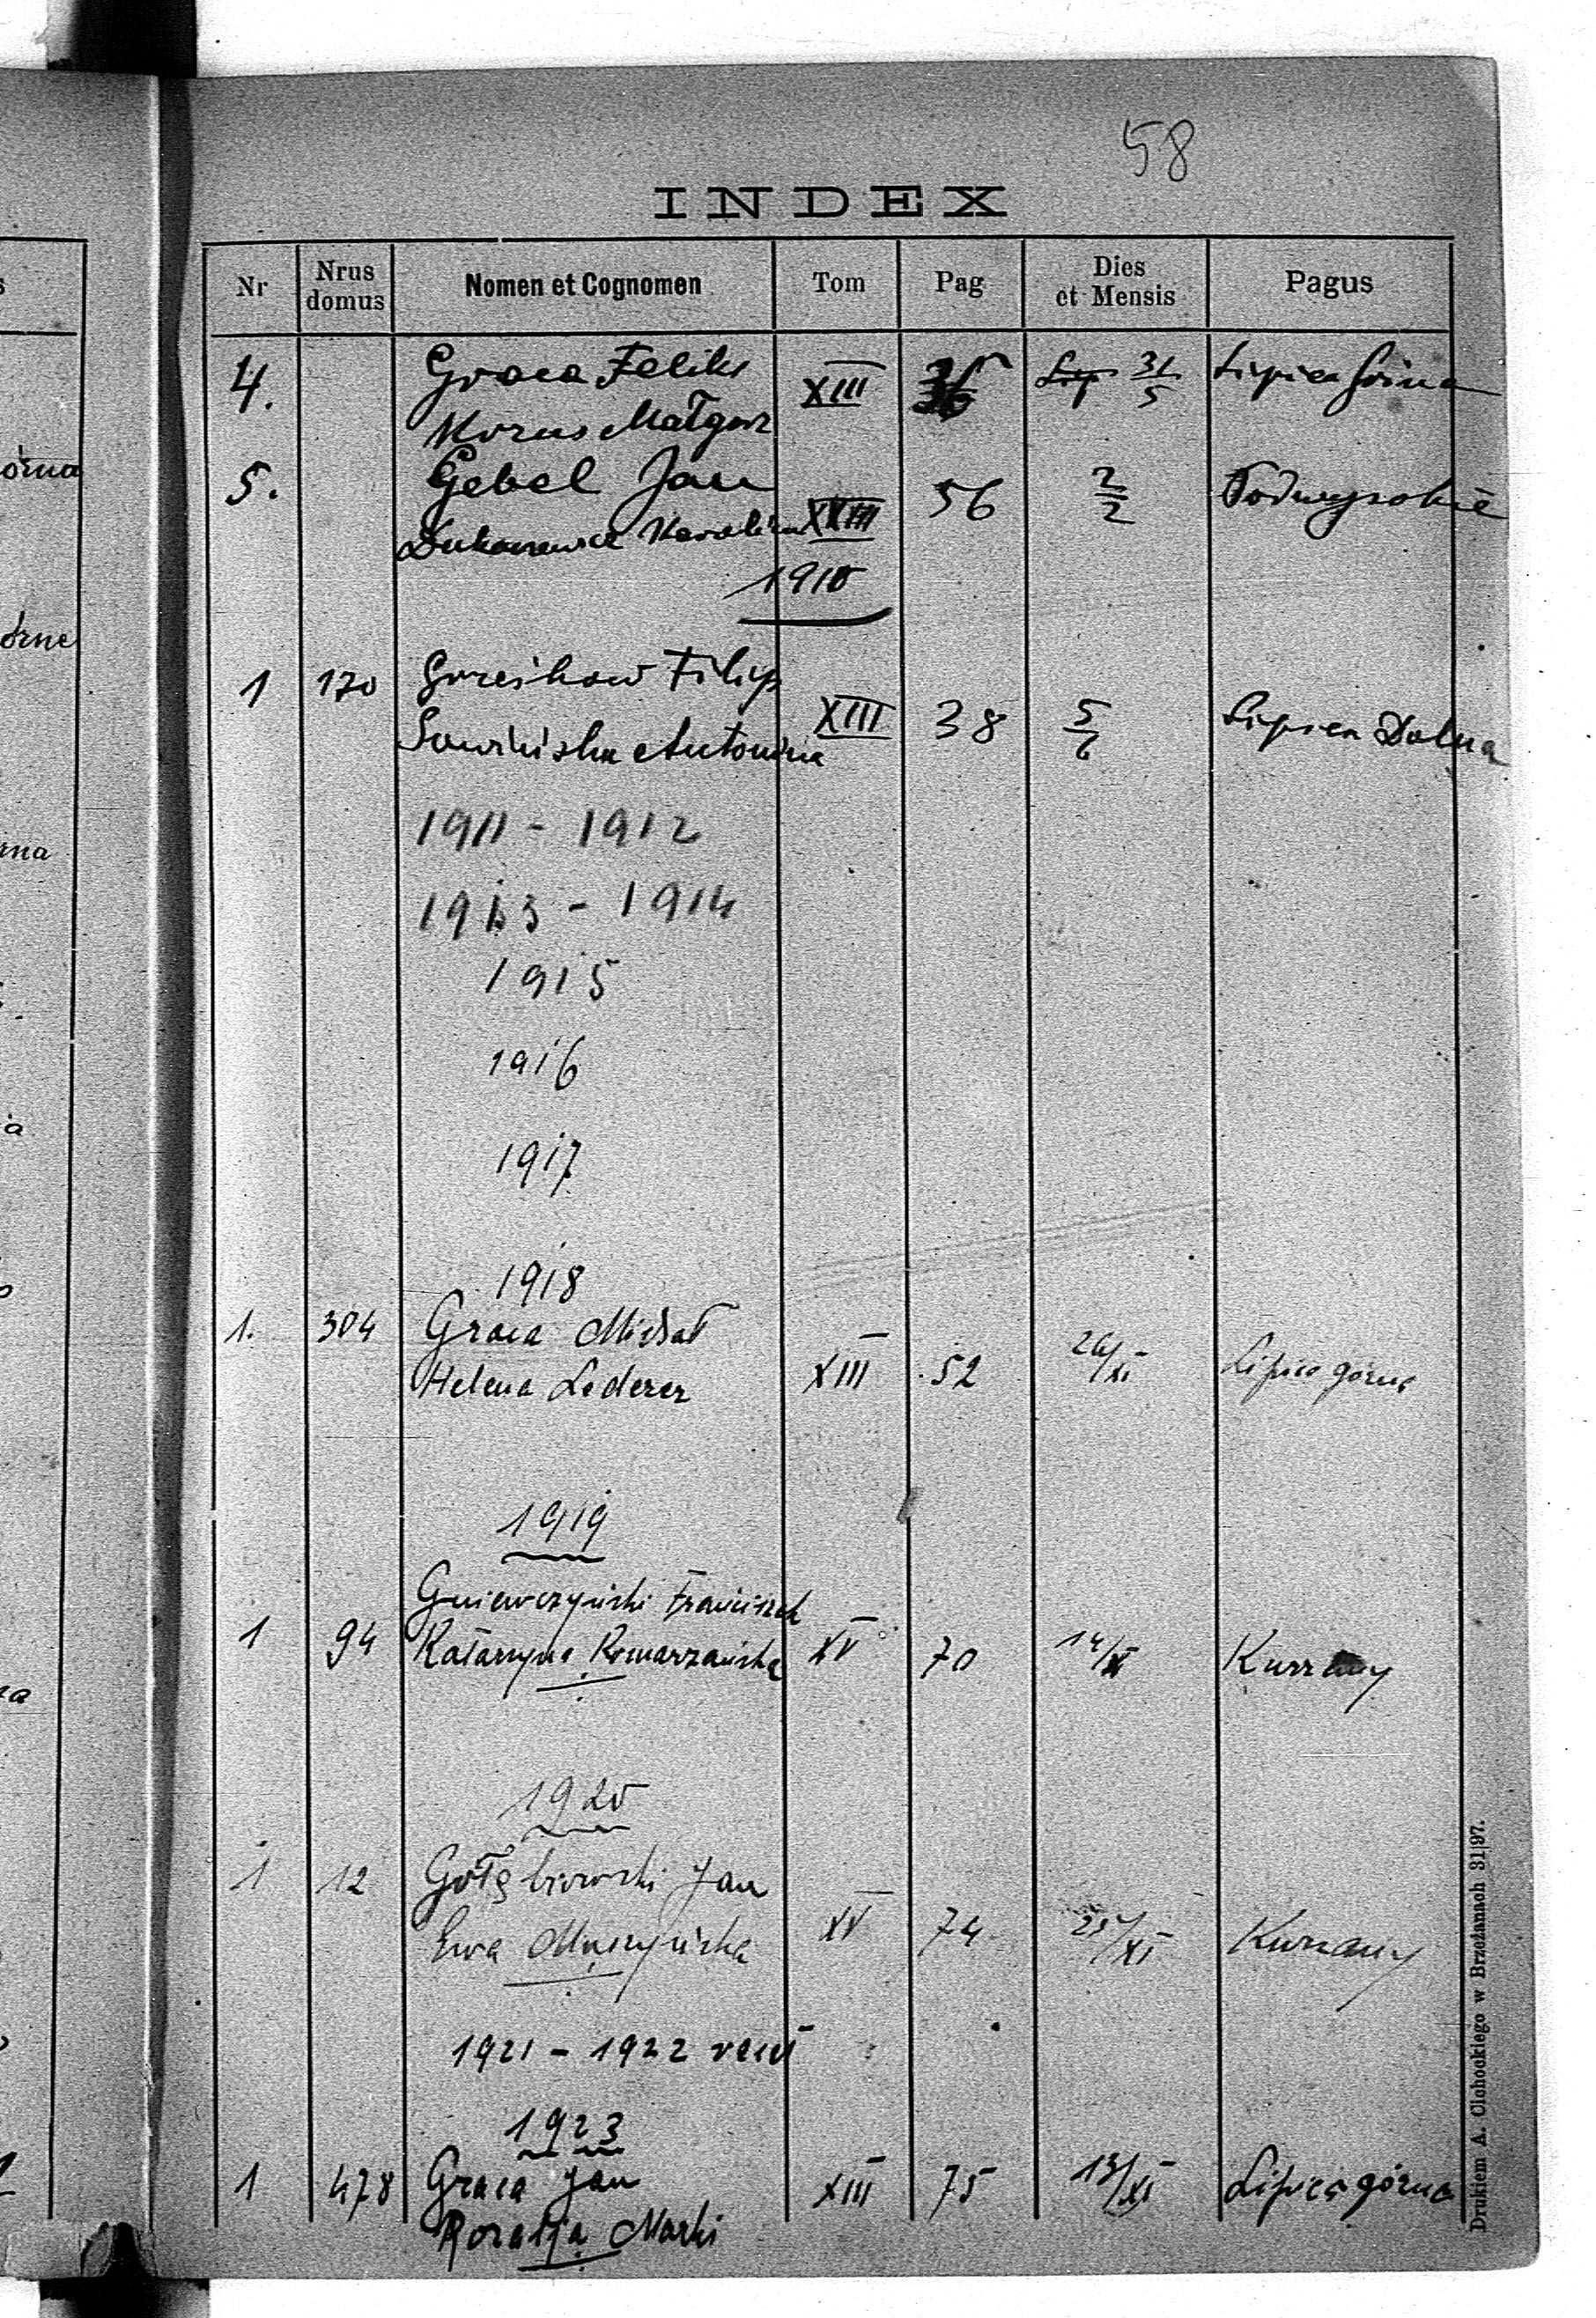 58
INDEX
Nr Nrus domus Nomen et Cognomen Tom Pag Dies et Mensis Pagus
4. Graca Feliks XIII 31/5 Lipica Górna
Korus Małgorz
5. Gebel Jan 56 2/2 Podwysokie
Karolina XXIII
1910
1 170 Filip XIII 38 5/6 Lipica Dolna
Sowińska Antonina
1911 - 1912
1913 - 1914
1915
1916
1917
1918
1. 304 Graca Michał
Helena Lederer XIII 52 26/XI Lipica górna
1919
Gniewczyński Franciszek
1 94 Katarzyna Komarzańska XV 70 14/X Kurzany
1920
1 12 Gołębiowski Jan
Ewa XV 74 25/XI Kurzany
1921 - 1922 vacat
1923
1 478 Graca Jan XIII 75 13/XI Lipica górna
Rozalja Marki
Drukiem A. Clohockiego w Brzeżanach 31|97.
órna
órne
rna
a